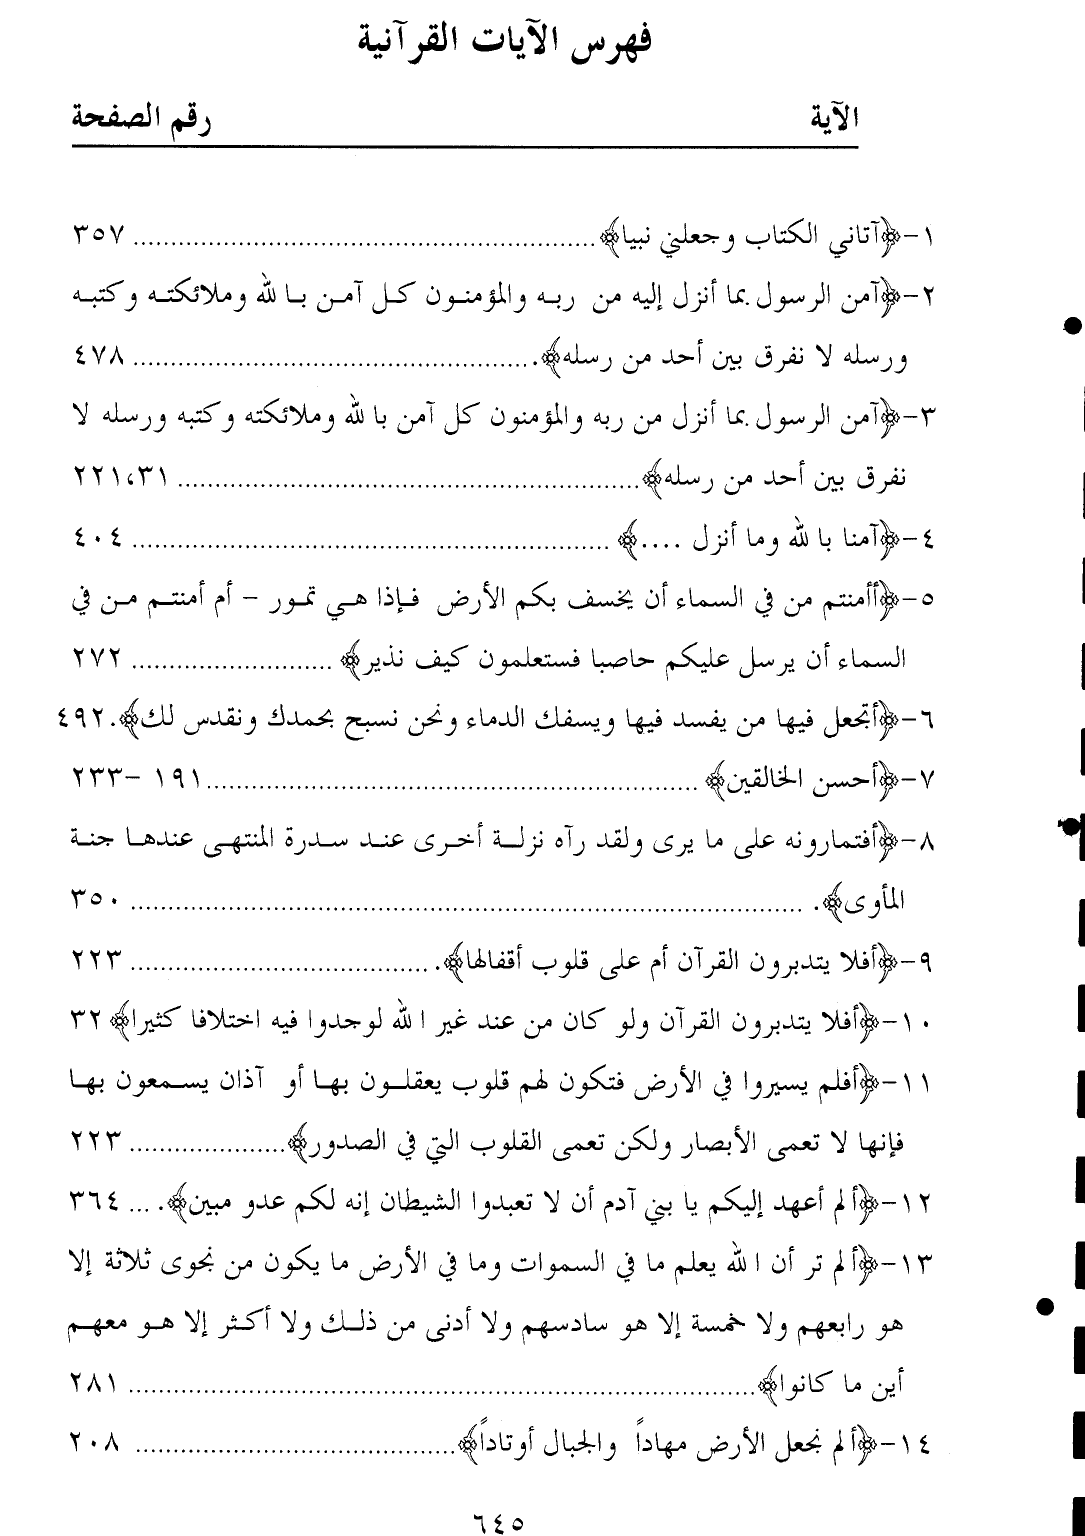 فهرس الآيات القرآنية
الآية رقم الصفحة
١-﴿آتاني الكتاب وجعلني نبيا﴾ ........ ٣٥٧
٢-﴿آمن الرسول بما أنزل إليه من ربه والمؤمنون كل آمن بالله وملائكته وكتبه
ورسله لا نفرق بين أحد من رسله﴾. ........ ٤٧٨
٣-﴿آمن الرسول بما أنزل من ربه والمؤمنون كل آمن بالله وملائكته وكتبه ورسله لا
نفرق بين أحد من رسله﴾ ........ ٢٢١،٣١
٤-﴿آمنا بالله وما أنزل ....﴾ ........ ٤٠٤
٥-﴿أأمنتم من في السماء أن يخسف بكم الأرض فإذا هي تمور - أم أمنتم من في
السماء أن يرسل عليكم حاصبا فستعلمون كيف نذير﴾ ........ ٢٧٢
٦-﴿أتجعل فيها من يفسد فيها ويسفك الدماء ونحن نسبح بحمدك ونقدس لك﴾. ٤٩٢
٧-﴿أحسن الخالقين﴾ ........ ١٩١ -٢٣٣
٨-﴿أفتمارونه على ما يرى ولقد رآه نزلة أخرى عند سدرة المنتهى عندها جنة
المأوى﴾. ........ ٣٥٠
٩-﴿أفلا يتدبرون القرآن أم على قلوب أقفالها﴾. ........ ٢٢٣
١٠-﴿أفلا يتدبرون القرآن ولو كان من عند غير الله لوجدوا فيه اختلافا كثيرا﴾ ٣٢
١١-﴿أفلم يسيروا في الأرض فتكون لهم قلوب يعقلون بها أو آذان يسمعون بها
فإنها لا تعمى الأبصار ولكن تعمى القلوب التي في الصدور﴾ ........ ٢٢٣
١٢-﴿ألم أعهد إليكم يا بني آدم أن لا تعبدوا الشيطان إنه لكم عدو مبين﴾. ... ٣٦٤
١٣-﴿ألم تر أن الله يعلم ما في السموات وما في الأرض ما يكون من نجوى ثلاثة إلا
هو رابعهم ولا خمسة إلا هو سادسهم ولا أدنى من ذلك ولا أكثر إلا هو معهم
أين ما كانوا﴾ ........ ٢٨١
١٤-﴿ألم نجعل الأرض مهاداً والجبال أوتاداً﴾ ........ ٢٠٨
٦٤٥